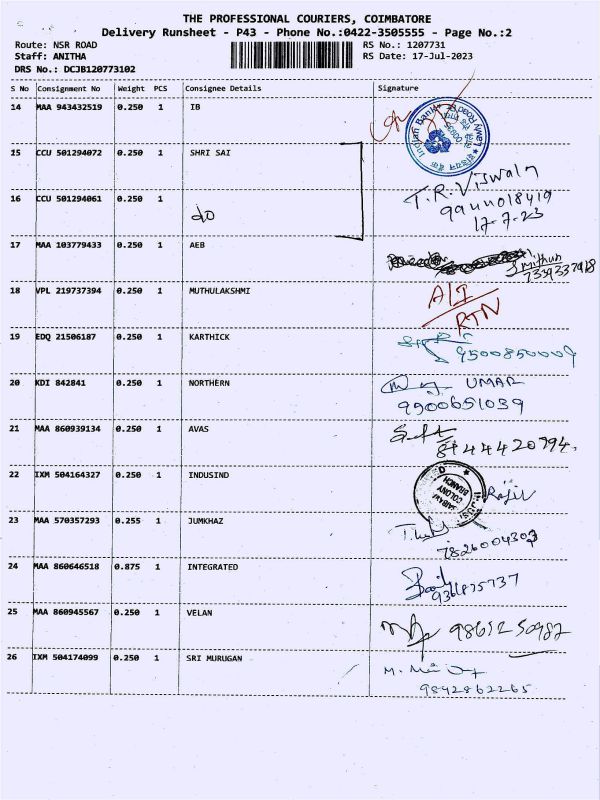 THE PROFESSIONAL COURIERS, COIMBATORE
Delivery Runsheet - P43 - Phone No.:0422-3505555 - Page No.:2
Route: NSR ROAD RS No.: 1207731
Staff: ANITHA RS Date: 17-Jul-2023
DRS No.: DCJB120773102
S No Consignment No Weight PCS Consignee Details Signature
14 MAA 943432519 0.250 1 IB
Indian Bank
15 CCU 501294072 0.250 1 SHRI SAI
T.R. Viswa
16 CCU 501294061 0.250 1 do
9944018419
17-7-23
17 MAA 103779433 0.250 1 AEB
Mithun
7339337918
18 VPL 219737394 0.250 1 MUTHULAKSHMI
RTN
19 EDQ 21506187 0.250 1 KARTHICK
9500850009
20 KDI 842841 0.250 1 NORTHERN UMAR
9900651039
21 MAA 860939134 0.250 1 AVAS
22 IXM 504164327 0.250 1 INDUSIND
SAIBABA COLONY BRANCH
Rajiv
23 MAA 570357293 0.255 1 JUMKHAZ
7826004303
24 MAA 860646518 0.875 1 INTEGRATED
25 MAA 860945567 0.250 1 VELAN
26 IXM 504174099 0.250 1 SRI MURUGAN
9842862265